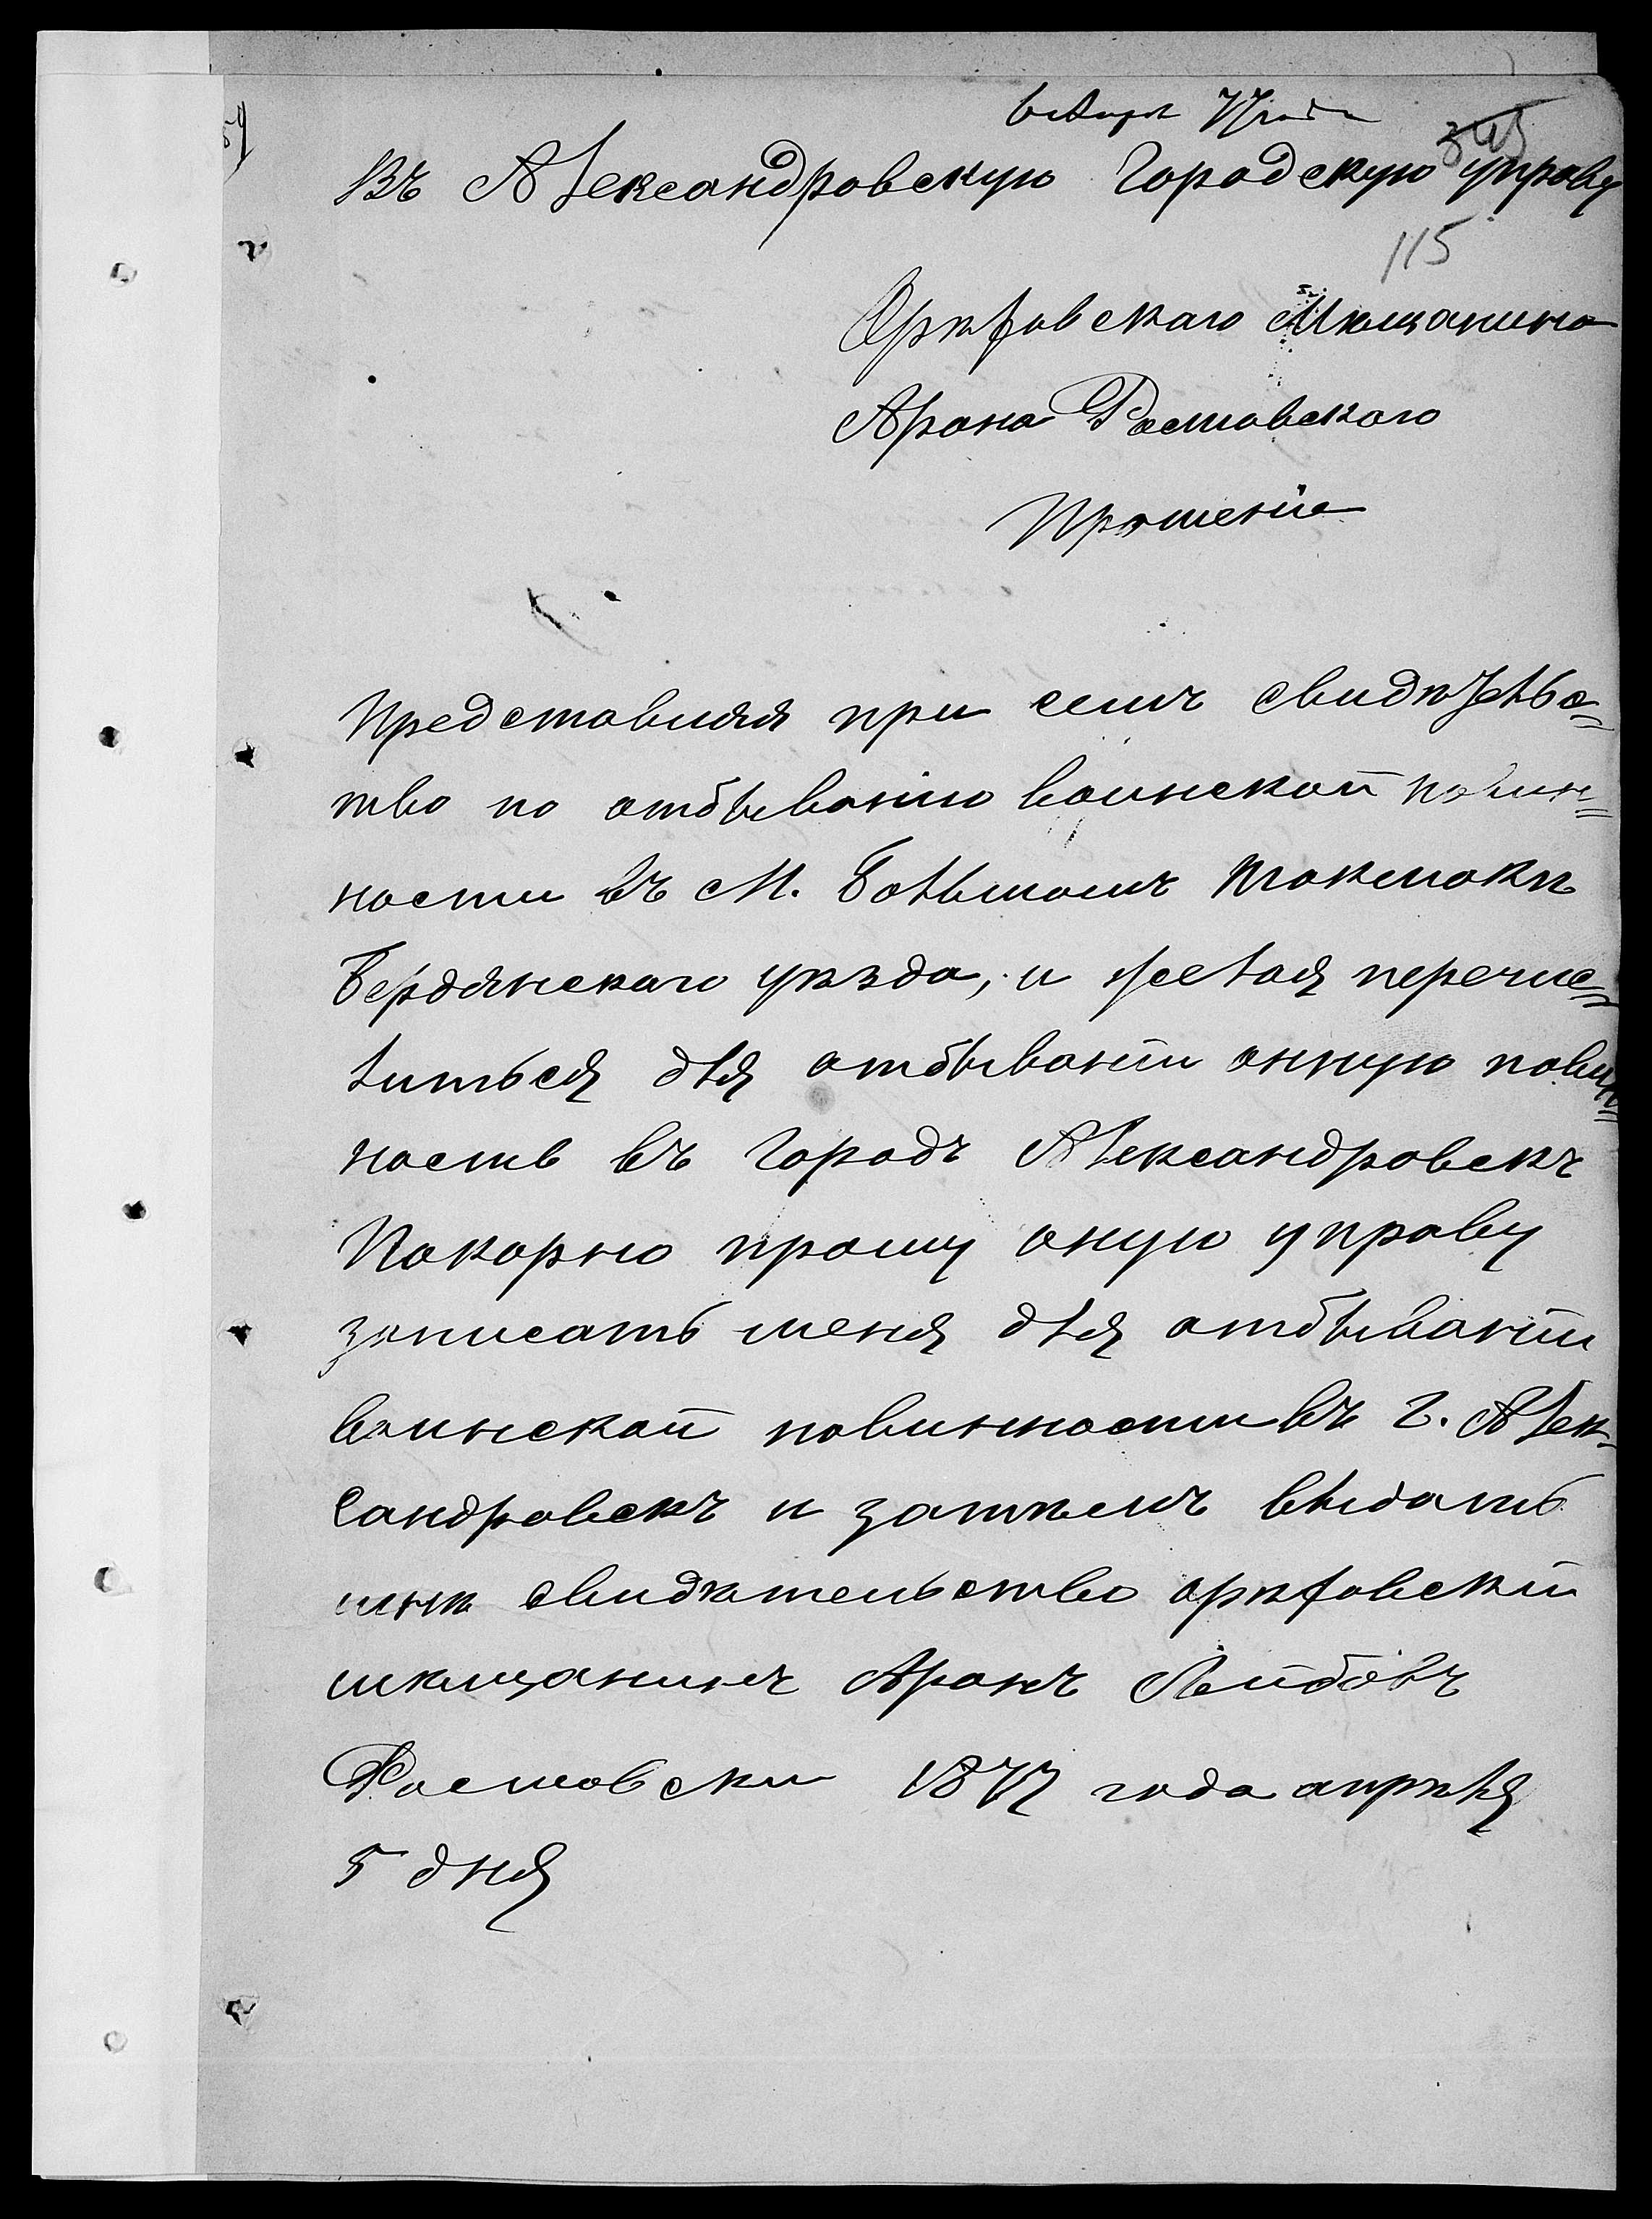 6 Апрл 77 года
345
Въ Александровскую Городскую управу
115
Орѣховскаго Мѣщанина
Арона Ростовскаго
Прошеніе
Представляя при семъ свидѣтельс=
тво по отбыванію воинской повин=
ности въ М. Большомъ Токмакѣ
Бердянскаго уѣзда, и желая перечис=
литься для отбыванія онную повин=
ность въ городъ Александровскъ
Покорно прошу оную управу
записать меня для отбыванія
воинской повинности въ г. Алек=
сандровскъ и затѣмъ выдать
мнѣ свидѣтельство орѣховскій
мѣщанинъ Аронъ Лейбовъ
Ростовски 1877 года апрѣля
5 дня